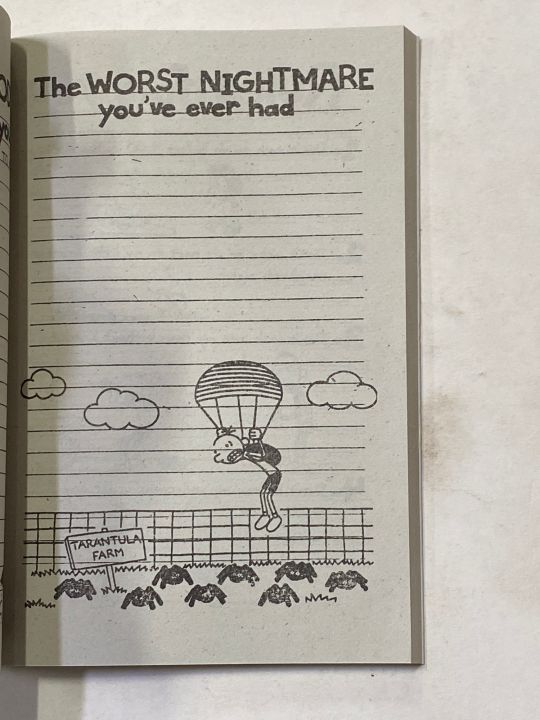 The WORST NIGHTMARE
you've ever had
TARANTULA
FARM